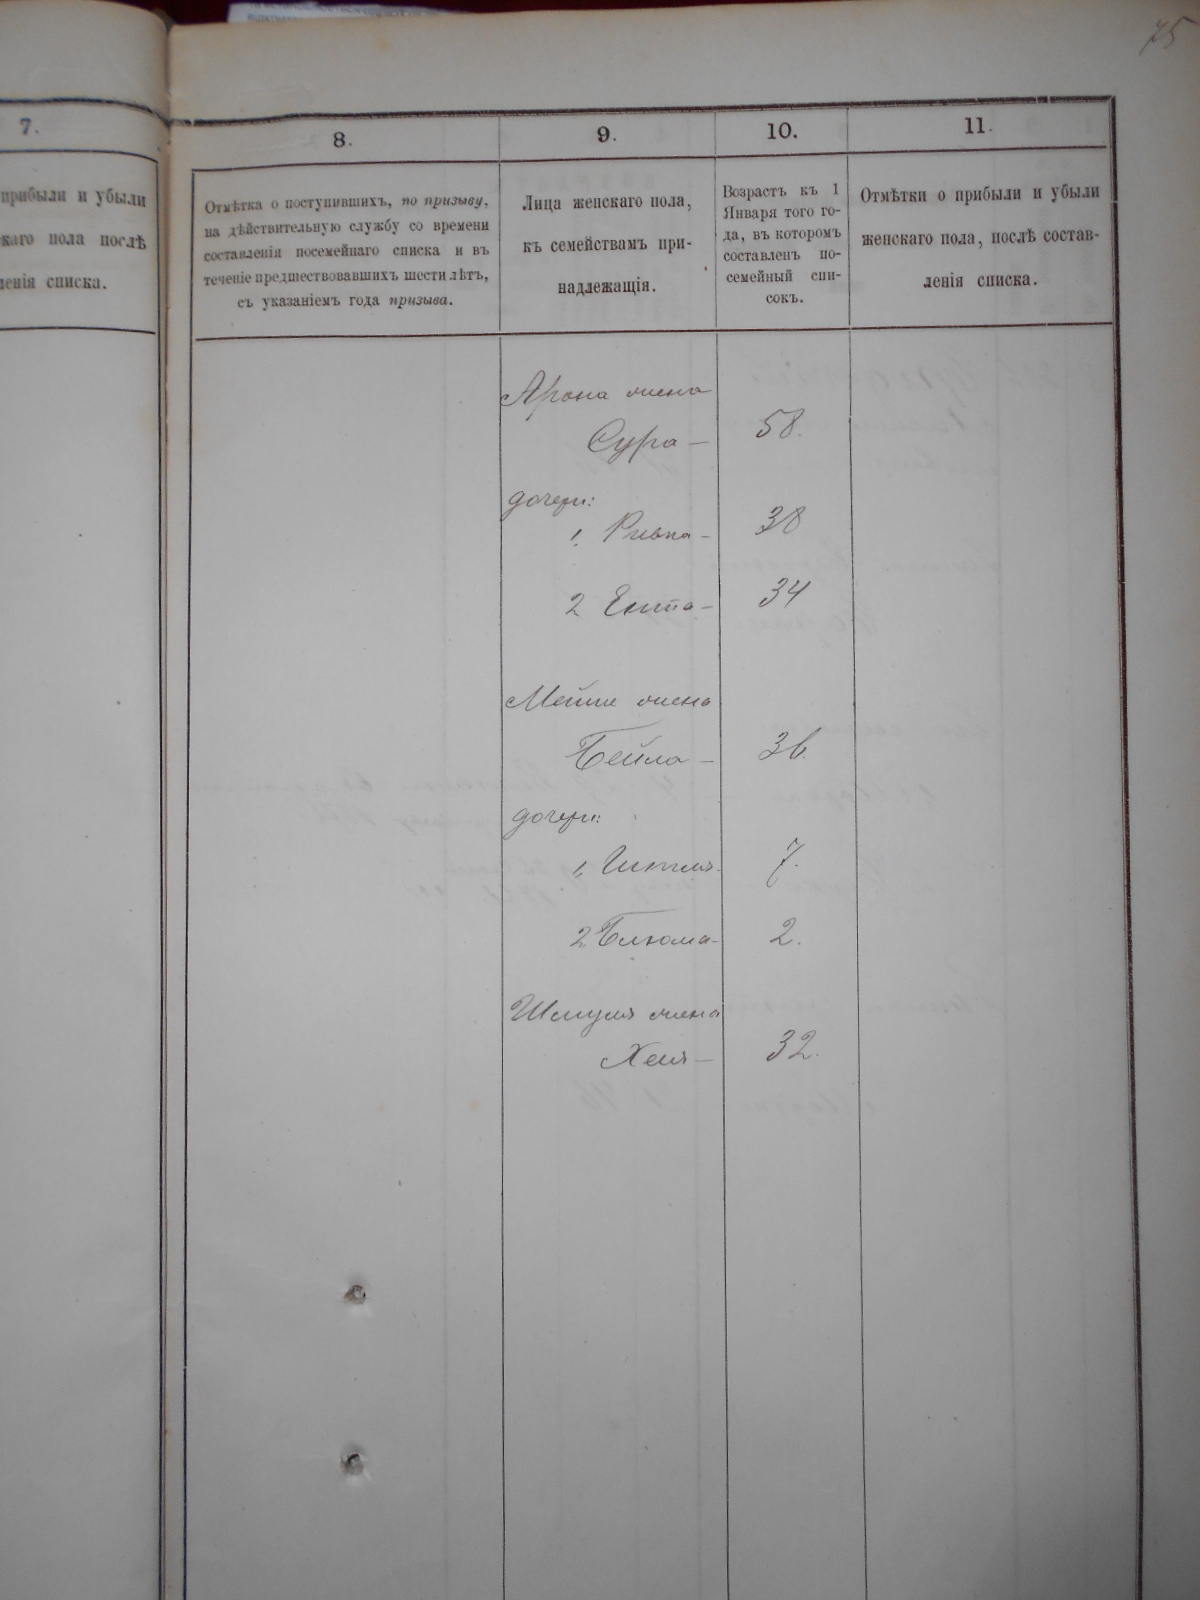 75
7.
прибыли и убыли
скаго пола послѣ
ленія списка.
8.
Отмѣтка о поступившихъ, по призыву,
на дѣйствительную службу со времени
составленія посемейнаго списка и въ
теченіе предшествовавшихъ шести лѣтъ,
съ указаніемъ года призыва.
9.
Лица женскаго пола,
къ семействамъ при-
надлежащія.
10.
Возрастъ къ 1
Января того го-
да, въ которомъ
составленъ по-
семейный спи-
сокъ.
11.
Отмѣтки о прибыли и убыли
женскаго пола, послѣ состав-
ленія списка.
Арона жена
Сура — 58.
дочери:
1. Ривка — 38
2 Ента — 34
Мейше жена
Бейла — 36.
дочери:
1, 7.
2 Блюма — 2.
Шмуля жена
Хая — 32.